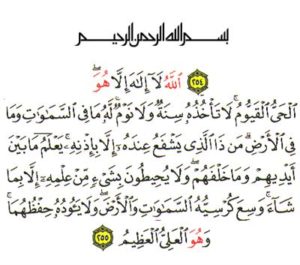 بسم الله الرحمن الرحيم
٢٥٤ ٱللَّهُ لَآ إِلَٰهَ إِلَّا هُوَ
ٱلْحَىُّ ٱلْقَيُّومُ ۚ لَا تَأْخُذُهُۥ سِنَةٌ وَلَا نَوْمٌ ۚ لَّهُۥ مَا فِى ٱلسَّمَٰوَٰتِ وَمَا
فِى ٱلْأَرْضِ ۗ مَن ذَا ٱلَّذِى يَشْفَعُ عِندَهُۥٓ إِلَّا بِإِذْنِهِۦ ۚ يَعْلَمُ مَا بَيْنَ
أَيْدِيهِمْ وَمَا خَلْفَهُمْ ۖ وَلَا يُحِيطُونَ بِشَىْءٍ مِّنْ عِلْمِهِۦٓ إِلَّا بِمَا
شَآءَ ۚ وَسِعَ كُرْسِيُّهُ ٱلسَّمَٰوَٰتِ وَٱلْأَرْضَ ۖ وَلَا يَـُٔودُهُۥ حِفْظُهُمَا ۚ
وَهُوَ ٱلْعَلِىُّ ٱلْعَظِيمُ ٢٥٥